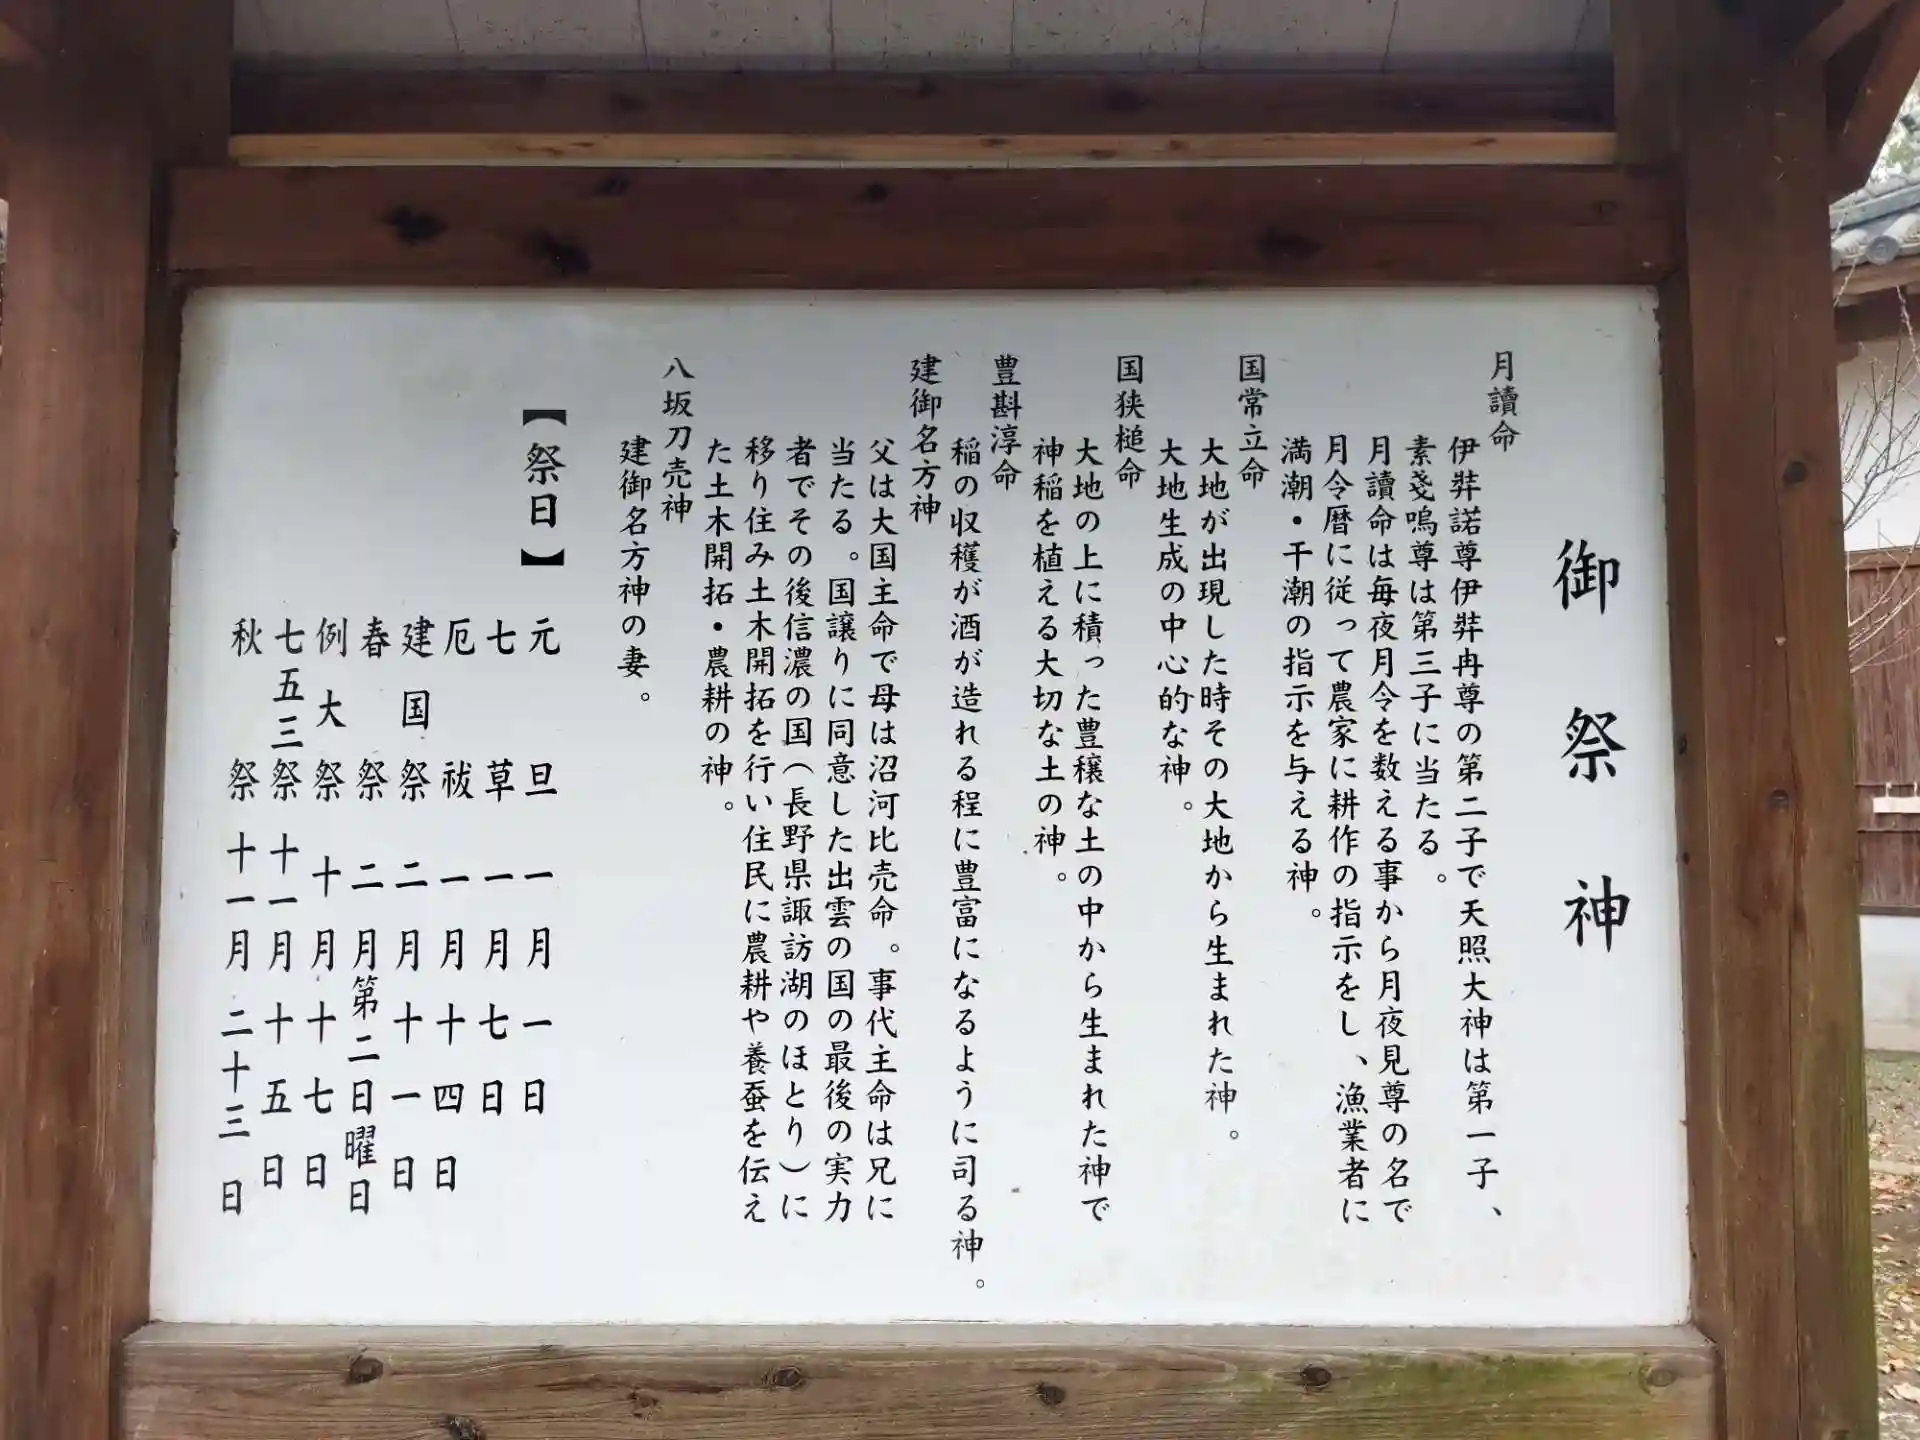 御祭神
月讀命
伊弉諾尊伊弉冉尊の第二子で天照大神は第一子、
素戔嗚尊は第三子に当たる。
月讀命は毎夜月令を数える事から月夜見尊の名で
月令暦に従って農家に耕作の指示をし、漁業者に
満潮・干潮の指示を与える神。
国常立命
大地が出現した時その大地から生まれた神。
大地生成の中心的な神。
国狭槌命
大地の上に積った豊穣な土の中から生まれた神で
神稲を植える大切な土の神。
豊斟淳命
稲の収穫が酒が造れる程に豊富になるように司る神。
建御名方神
父は大国主命で母は沼河比売命。事代主命は兄に
当たる。国譲りに同意した出雲の国の最後の実力
者でその後信濃の国(長野県諏訪湖のほとり)に
移り住み土木開拓を行い住民に農耕や養蚕を伝え
た土木開拓・農耕の神。
八坂刀売神
建御名方神の妻。
【祭日】
元旦 一月一日
七草 一月七日
厄祓 一月十四日
建国祭 二月十一日
春祭 二月第二日曜日
例大祭 十月十七日
七五三祭 十一月十五日
秋祭 十一月二十三日